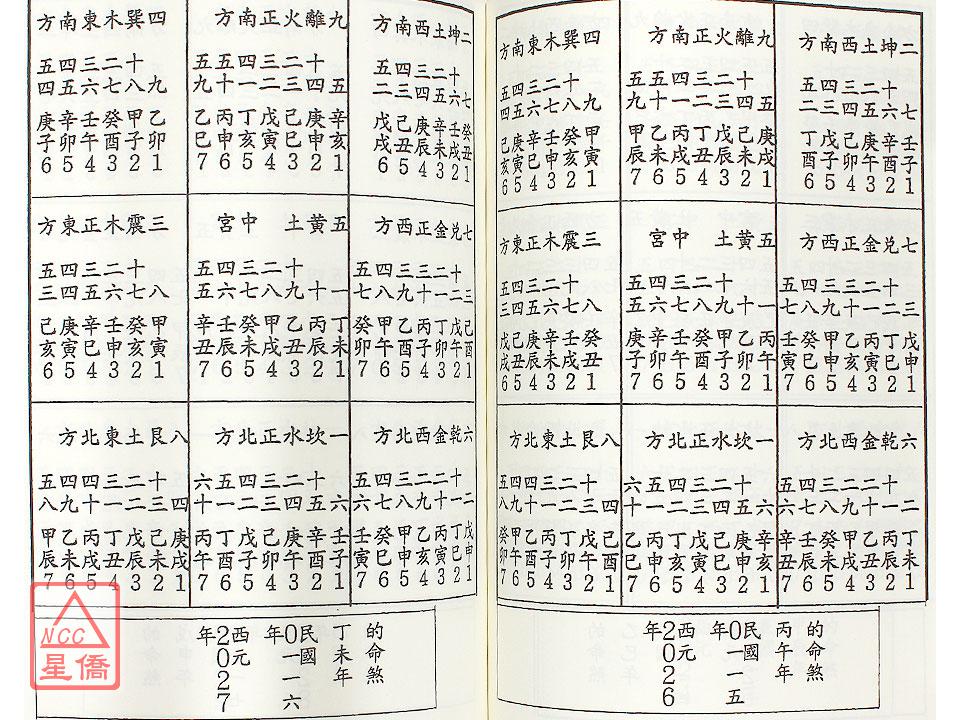 二坤土西南方
七壬子1
十六辛酉2
二五庚午3
三四己卯4
四三戊子5
五二丁酉6
九離火正南方
五庚戌1
十四己未2
二三戊辰3
三二丁丑4
四一丙戌5
五十乙未6
五九甲辰7
四巽木東南方
九甲寅1
十八癸亥2
二七壬申3
三六辛巳4
四五庚寅5
五四己亥6
七兌金正西方
三戊申1
十二丁巳2
二一丙寅3
三十乙亥4
三九甲申5
四八癸巳6
五七壬寅7
五黃土中宮
一丙午1
十乙卯2
十九甲子3
二八癸酉4
三七壬午5
四六辛卯6
五五庚子7
三震木正東方
八癸丑1
十七壬戌2
二六辛未3
三五庚辰4
四四己丑5
五三戊戌6
六乾金西北方
二丁未1
十一丙辰2
二十乙丑3
二九甲戌4
三八癸未5
四七壬辰6
五六辛丑7
一坎水正北方
六辛亥1
十五庚申2
二四己巳3
三三戊寅4
四二丁亥5
五一丙申6
六十乙巳7
八艮土東北方
四己酉1
十三戊午2
二二丁卯3
三一丙子4
四十乙酉5
四九甲午6
五八癸卯7
的命煞
丙午年
民國
0一一五
年
西元
2026
年
二坤土西南方
七癸丑1
十六壬戌2
二五辛未3
三四庚辰4
四三己丑5
五二戊戌6
九離火正南方
五辛亥1
十四庚申2
二三己巳3
三二戊寅4
四一丁亥5
五十丙申6
五九乙巳7
四巽木東南方
九乙卯1
十八甲子2
二七癸酉3
三六壬午4
四五辛卯5
五四庚子6
七兌金正西方
三己酉1
十二戊午2
二一丁卯3
三十丙子4
三九乙酉5
四八甲午6
五七癸卯7
五黃土中宮
一丁未1
十丙辰2
十九乙丑3
二八甲戌4
三七癸未5
四六壬辰6
五五辛丑7
三震木正東方
八甲寅1
十七癸亥2
二六壬申3
三五辛巳4
四四庚寅5
五三己亥6
六乾金西北方
二戊申1
十一丁巳2
二十丙寅3
二九乙亥4
三八甲申5
四七癸巳6
五六壬寅7
一坎水正北方
六壬子1
十五辛酉2
二四庚午3
三三己卯4
四二戊子5
五一丁酉6
六十丙午7
八艮土東北方
四庚戌1
十三己未2
二二戊辰3
三一丁丑4
四十丙戌5
四九乙未6
五八甲辰7
的命煞
丁未年
民國
0一一六
年
西元
2027
年
NCC
星僑